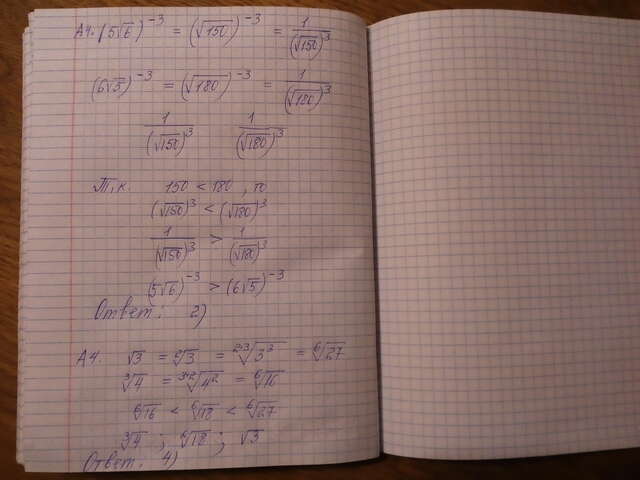 А4. (5√6)⁻³ = (√150)⁻³ = 1/(√150)³
(6√5)⁻³ = (√180)⁻³ = 1/(√180)³
1/(√150)³ 1/(√180)³
Т.к. 150 < 180, то
(√150)³ < (√180)³
1/(√150)³ > 1/(√180)³
(5√6)⁻³ > (6√5)⁻³
Ответ: 2)
А4. √3 = ²√3 = ²·³√3³ = ⁶√27
³√4 = ³·²√4² = ⁶√16
⁶√16 < ⁶√18 < ⁶√27
³√4 ; ⁶√18 ; √3
Ответ. 4)